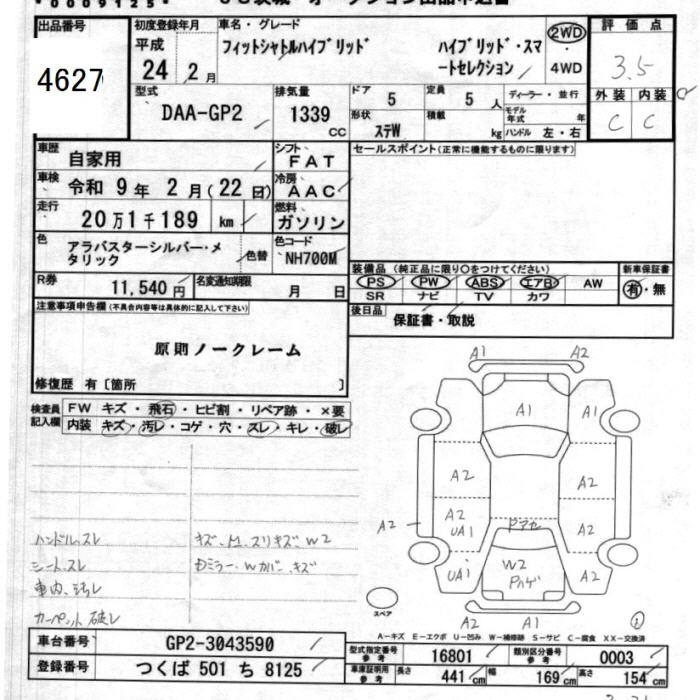 *0009125*
出品番号
4627
初度登録年月
平成
24 2月
車名・グレード
フィットシャトルハイブリッド ハイブリッド・スマートセレクション
2WD
4WD
評価点
3.5
外装 内装
C C
型式
DAA-GP2
排気量
1339
CC
ドア 5
定員 5 人
ディーラー・並行
形状 ステW
積載 kg
モデル年式 年
ハンドル 左・右
車歴 自家用
シフト FAT
セールスポイント(正常に機能するものに限ります)
車検 令和 9年 2月(22日)
冷房 AAC
走行 20万1千189 km
燃料 ガソリン
色 アラバスターシルバー・メタリック
色替
色コード NH700M
R券 11,540円
名変通知期限 月 日
装備品(純正品に限り○をつけてください)
PS PW ABS エアB AW
SR ナビ TV カワ
新車保証書
有・無
後日品 保証書・取説
注意事項申告欄(不具合内容等は具体的に記入して下さい)
原則ノークレーム
修復歴 有〔箇所 〕
検査員記入欄
FW キズ・飛石・ヒビ割・リペア跡・×要
内装 キズ・汚レ・コゲ・穴・スレ・キレ・破レ
ハンドル.スレ
シート.スレ
車内.汚レ
カーペット破レ
A1 A2
A1 A1
A2 A2
A2 A2 UA1 A2
UA1 W2 A2
A2 A1
スペア
A-キズ E-エクボ U-凹み W-補修跡 S-サビ C-腐食 XX-交換済
車台番号 GP2-3043590
登録番号 つくば 501 ち 8125
型式指定番号 参考 16801
類別区分番号 参考 0003
車庫証明用 参考 長さ 441 cm 幅 169 cm 高さ 154 cm